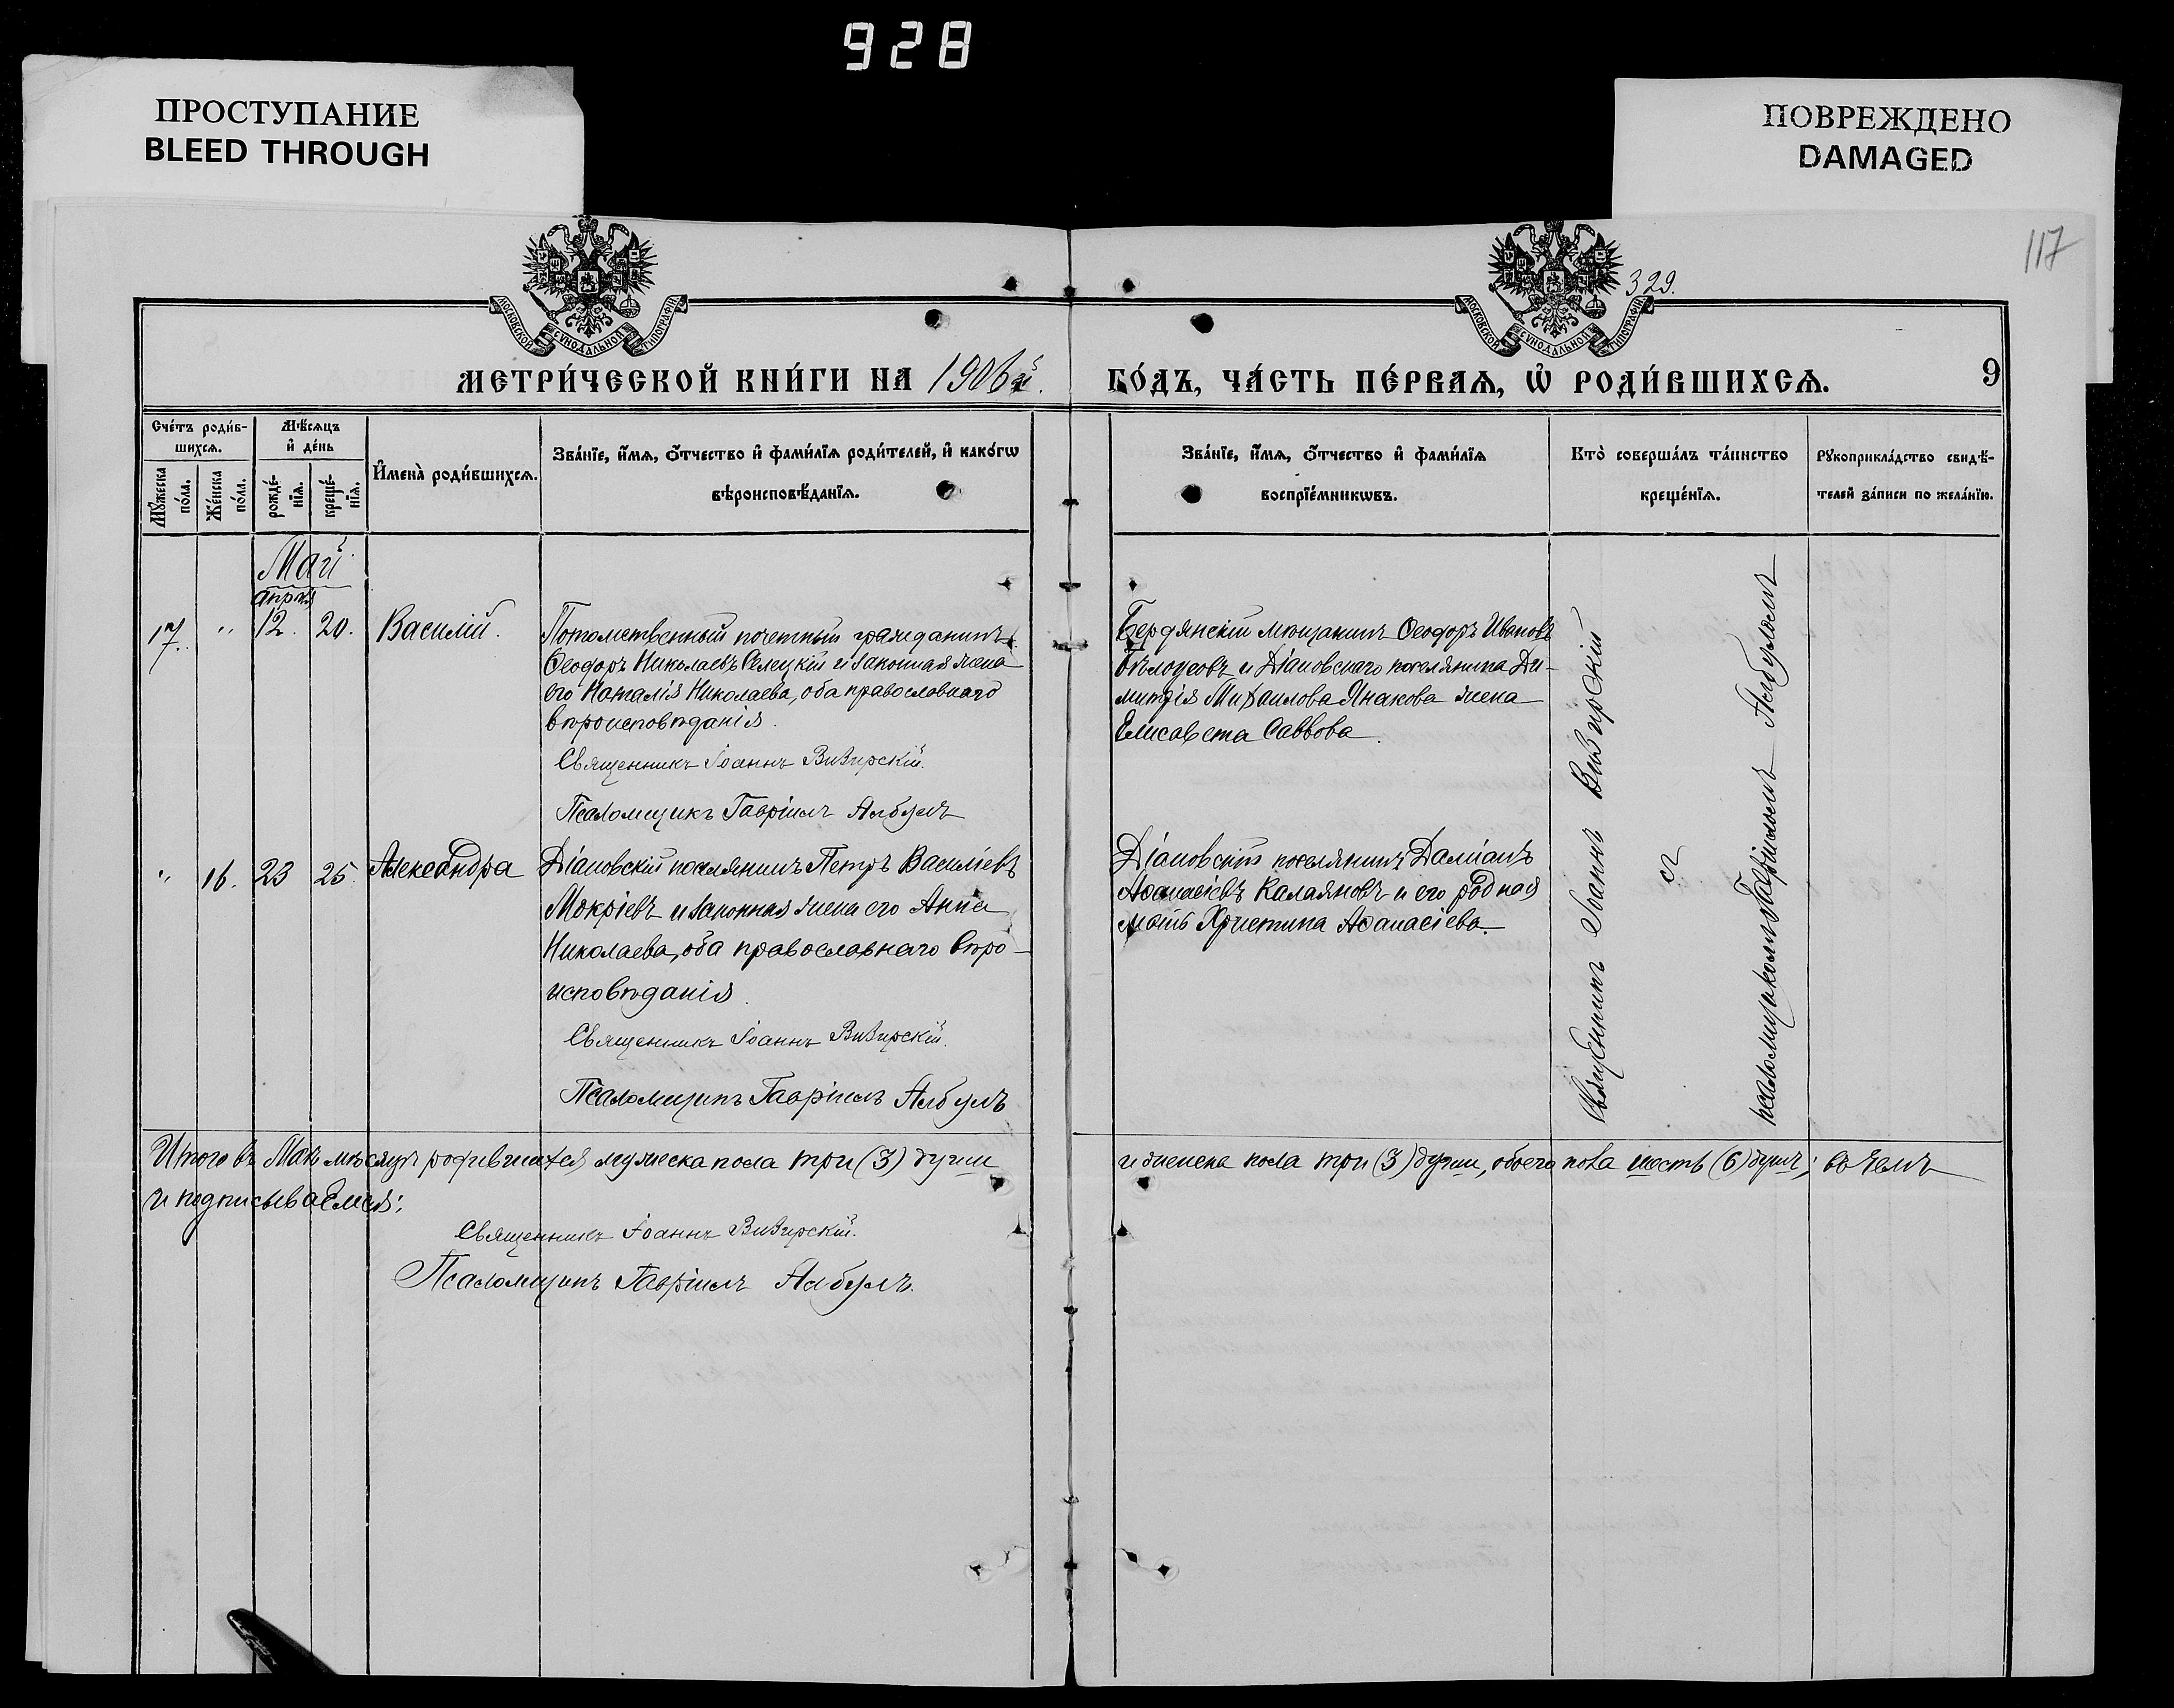 928
ПРОСТУПАНИЕ
BLEED THROUGH
ПОВРЕЖДЕНО
DAMAGED
117
329.
МОСКОВСКОЙ СѴНОДАЛЬНОЙ ТИПОГРАФІИ
МОСКОВСКОЙ СѴНОДАЛЬНОЙ ТИПОГРАФІИ
МЕТРИ́ЧЕСКОЙ КНИ́ГИ НА 1906й. ГО́ДЪ, ЧА́СТЬ ПЕ́РВАЯ, Ѡ҆ РОДИ́ВШИХСЯ.
9
Сче́тъ роди́в-
шихся.
Мꙋ́жеска по́ла.
Же́нска по́ла.
Мѣ́сяцъ
и҆ де́нь
рожде́-
нїя.
креще́-
нїя.
И҆мена̀ роди́вшихся.
Зва́нїе, и҆́мя, ѻ҆́тчество и҆ фами́лїя роди́телей, и҆ како́гѡ
вѣроисповѣ́данїя.
Зва́нїе, и҆́мя, ѻ҆́тчество и҆ фами́лїя
воспрїе́мникѡвъ.
Кто̀ соверша́лъ та́инство
креще́нїя.
Рꙋкоприкла́дство свидѣ́-
телей за́писи по жела́нїю.
Май.
апрѣл
17. " 12. 20. Василій.
Потомственный почетный гражданинъ
Ѳеодоръ Николаевъ Селецкій и законная жена
его Наталія Николаева, оба православнаго
вѣроисповѣданія.
Священникъ Іоаннъ Визирскій.
Псаломщикъ Гавріилъ Албулъ
Бердянскій мѣщанинъ Ѳеодоръ Ивановъ
Бѣлоусовъ и Діановскаго поселянина Ди-
митрія Михаилова Янакова жена
Елисавета Саввова.
" 16. 23 25 Александра
Діановскій поселянинъ Петръ Василіевъ
Мокріевъ и законная жена его Анна
Николаева, оба православнаго вѣро-
исповѣданія.
Священникъ Іоаннъ Визирскій.
Псаломщикъ Гавріилъ Албулъ
Діановскій поселянинъ Даміанъ
Аѳанасіевъ Калаяновъ и его родная
мать Христина Аѳанасіева.
Священникъ Іоаннъ Визирскій
съ
псаломщикомъ Гавріиломъ Албуломъ
Итого въ Маѣ мѣсяцѣ родившихся мужеска пола три (3) души и женска пола три (3) души, обоего пола шесть (6) душъ; въ чемъ
и подписываемся:
Священникъ Іоаннъ Визирскій.
Псаломщикъ Гавріилъ Албулъ.